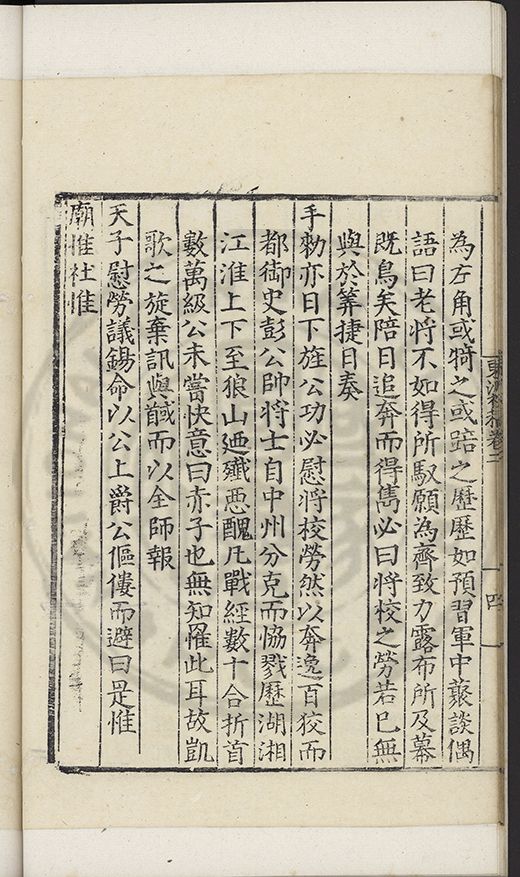 為左角或犄之或踣之歷歷如預習軍中褻談偶
語曰老將不如得所馭願為齊致力露布所及幕
既鳥矣陪日追奔而得雋必曰將校之勞若已無
與於筭捷日奏
手勑亦日下旌公功必慰將校勞然以奔逸百狡而
都御史彭公帥將士自中州分克而恊戮歷湖湘
江淮上下至狼山廼殲惡醜凡戰經數十合折首
數萬級公未嘗快意曰赤子也無知罹此耳故凱
歌之旋棄訊與馘而以全師報
天子慰勞議錫命以公上爵公傴僂而避曰是惟
廟惟社惟
卷之
四